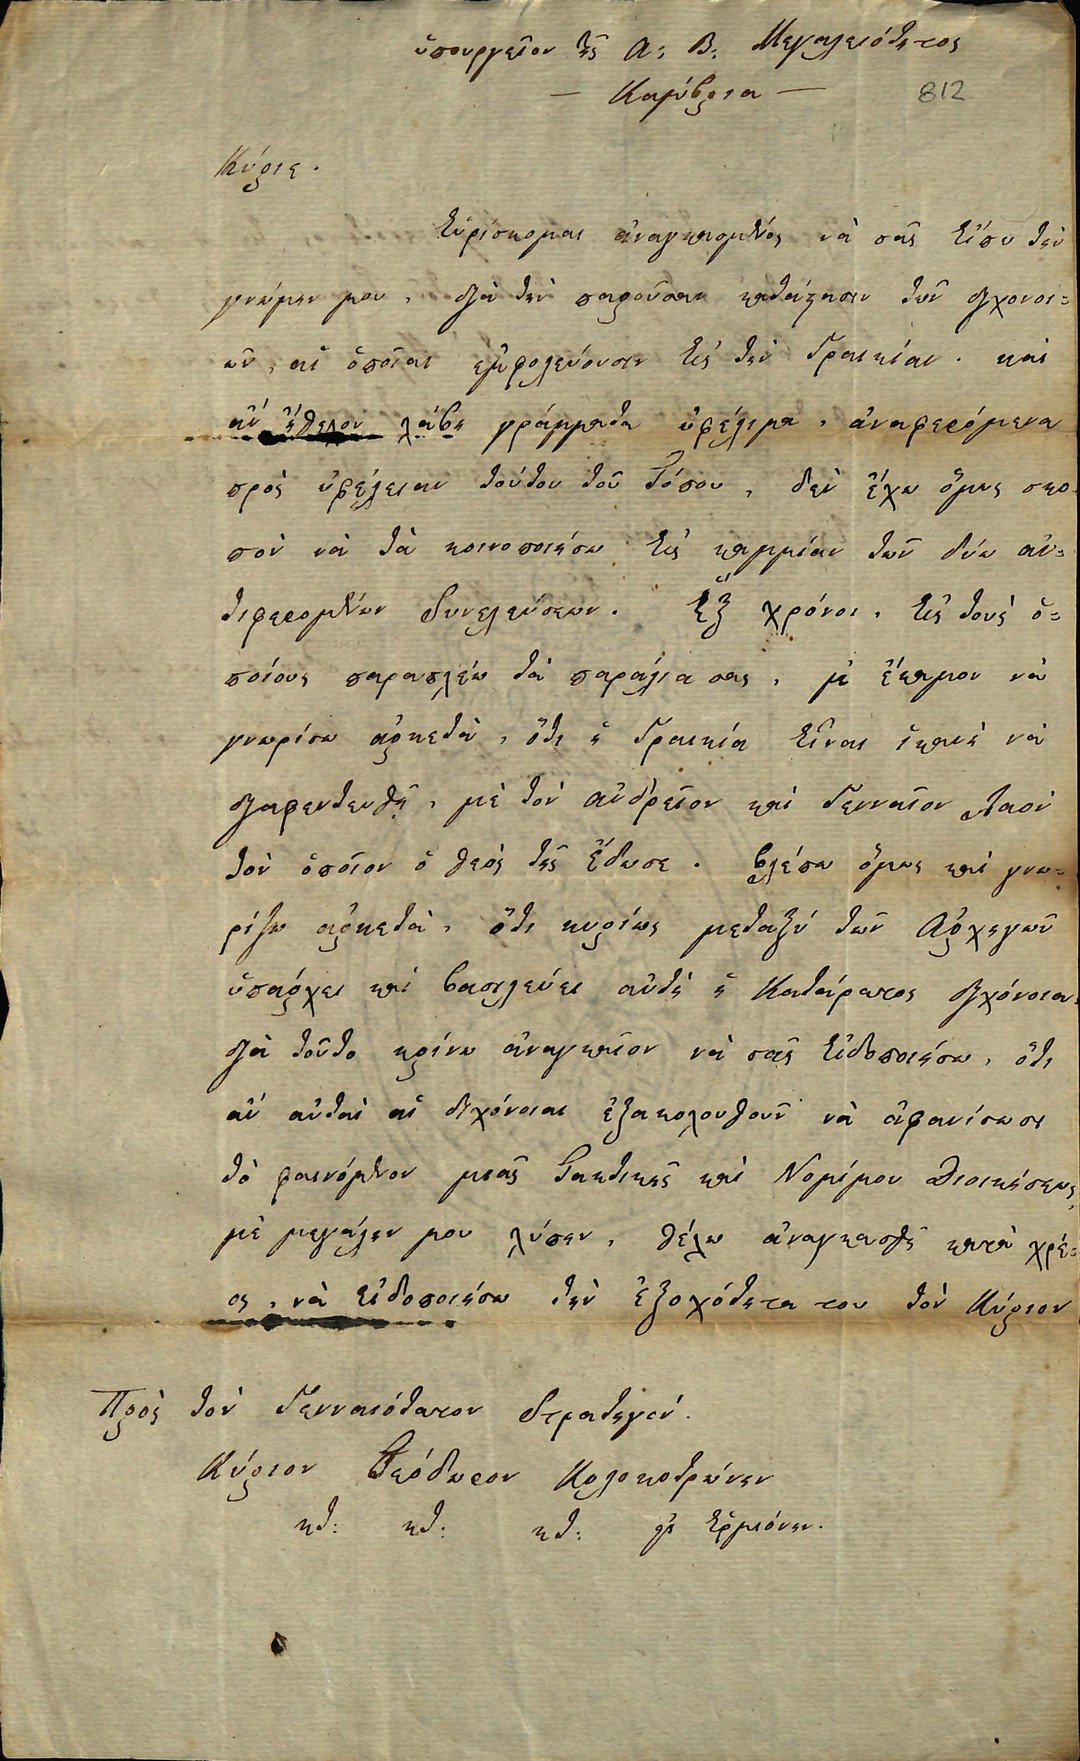 ὑπουργεῖον τῆς Α: Β: Μεγαλειότητος
— Καμύβρια —
812
Κύριε.
Εὑρίσκομαι ἀναγκασμένος νὰ σᾶς εἴπω τὴν
γνώμην μου, διὰ τὴν παροῦσαν κατάστασιν τῶν διχονοι=
ῶν, αἱ ὁποῖαι ἐμφολεύουσιν εἰς τὴν Γραικίαν. καὶ
ἀν' ἤθελον λάβῃ γράμματα ὠφέλιμα, ἀναφερόμενα
πρὸς ὠφέλειαν τούτου τοῦ τόπου, δὲν ἔχω ὅμως σκο=
πὸν νὰ τὰ κοινοποιήσω εἰς καμμίαν τῶν δύω ἀν=
τιφερομένων Συνελεύσεων. Ἓξ χρόνοι, εἰς τοὺς ὁ=
ποίους παραπλέω τὰ παράλια σας, μὲ ἔκαμον νὰ
γνωρίσω ἀρκετὰ, ὅτι ἡ Γραικία εἶναι ἱκανὴ νὰ
διαφεντευθῇ, μὲ τὸν ἀνδρεῖον καὶ Γενναῖον Λαὸν
τὸν ὁποῖον ὁ θεὸς τῆς ἔδωσε. βλέπω ὅμως καὶ γνω=
ρίζω ἀρκετὰ, ὅτι κυρίως μεταξὺ τῶν Ἀρχηγῶν
ὑπάρχει καὶ βασιλεύει αὐτὴ ἡ Κατάρατος διχόνοια.
διὰ τοῦτο κρίνω ἀναγκαῖον νὰ σᾶς εἰδοποιήσω, ὅτι
ἀν' αὐταὶ αἱ διχόνοιαι ἐξακολουθοῦν νὰ ἀφανίσωσι
τὸ φαινόμενον μιᾶς Τακτικῆς καὶ Νομίμου Διοικήσεως,
μὲ μεγάλην μου λύπην, θέλω ἀναγκασθῆ κατὰ χρέ=
ος, νὰ εἰδοποιήσω τὴν ἐξοχότητα του τὸν Κύριον
Πρὸς τὸν Γενναιότατον Στρατηγόν.
Κύριον Θεόδωρον Κολοκοτρώνην
κτ: κτ: κτ: εἰς Ἑρμιόνην.